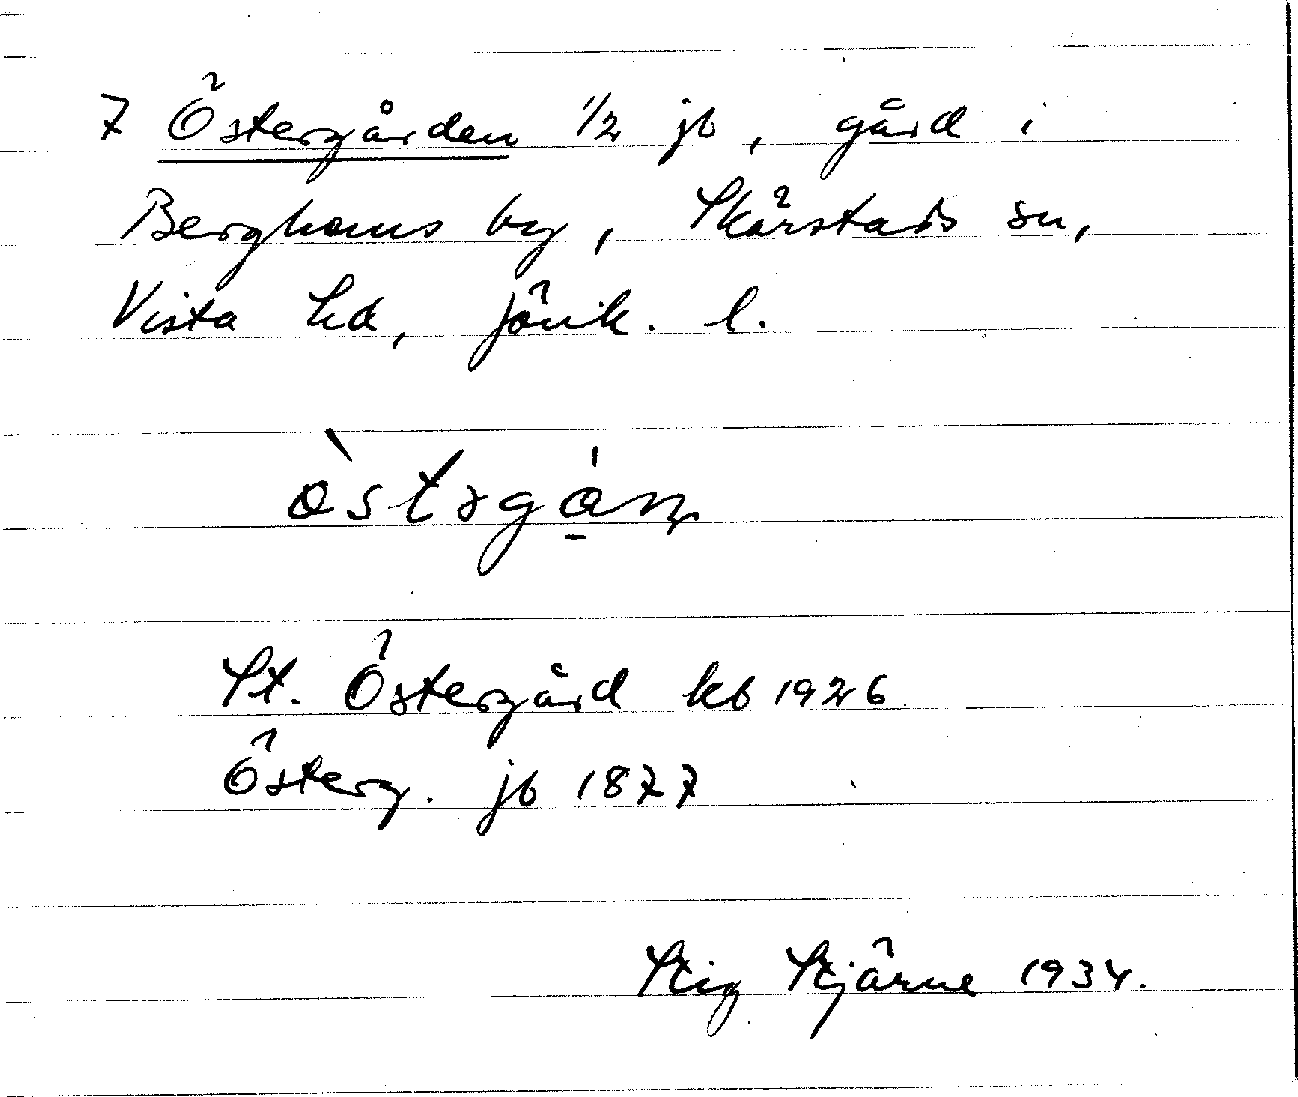 7 Östergården 1/2 jb, gård i
Berghems by, Skärstads sn,
Vista hd, Jönk. l.
St. Östergård kb 1926
Österg. jb 1877
Stig Stjärne 1934.